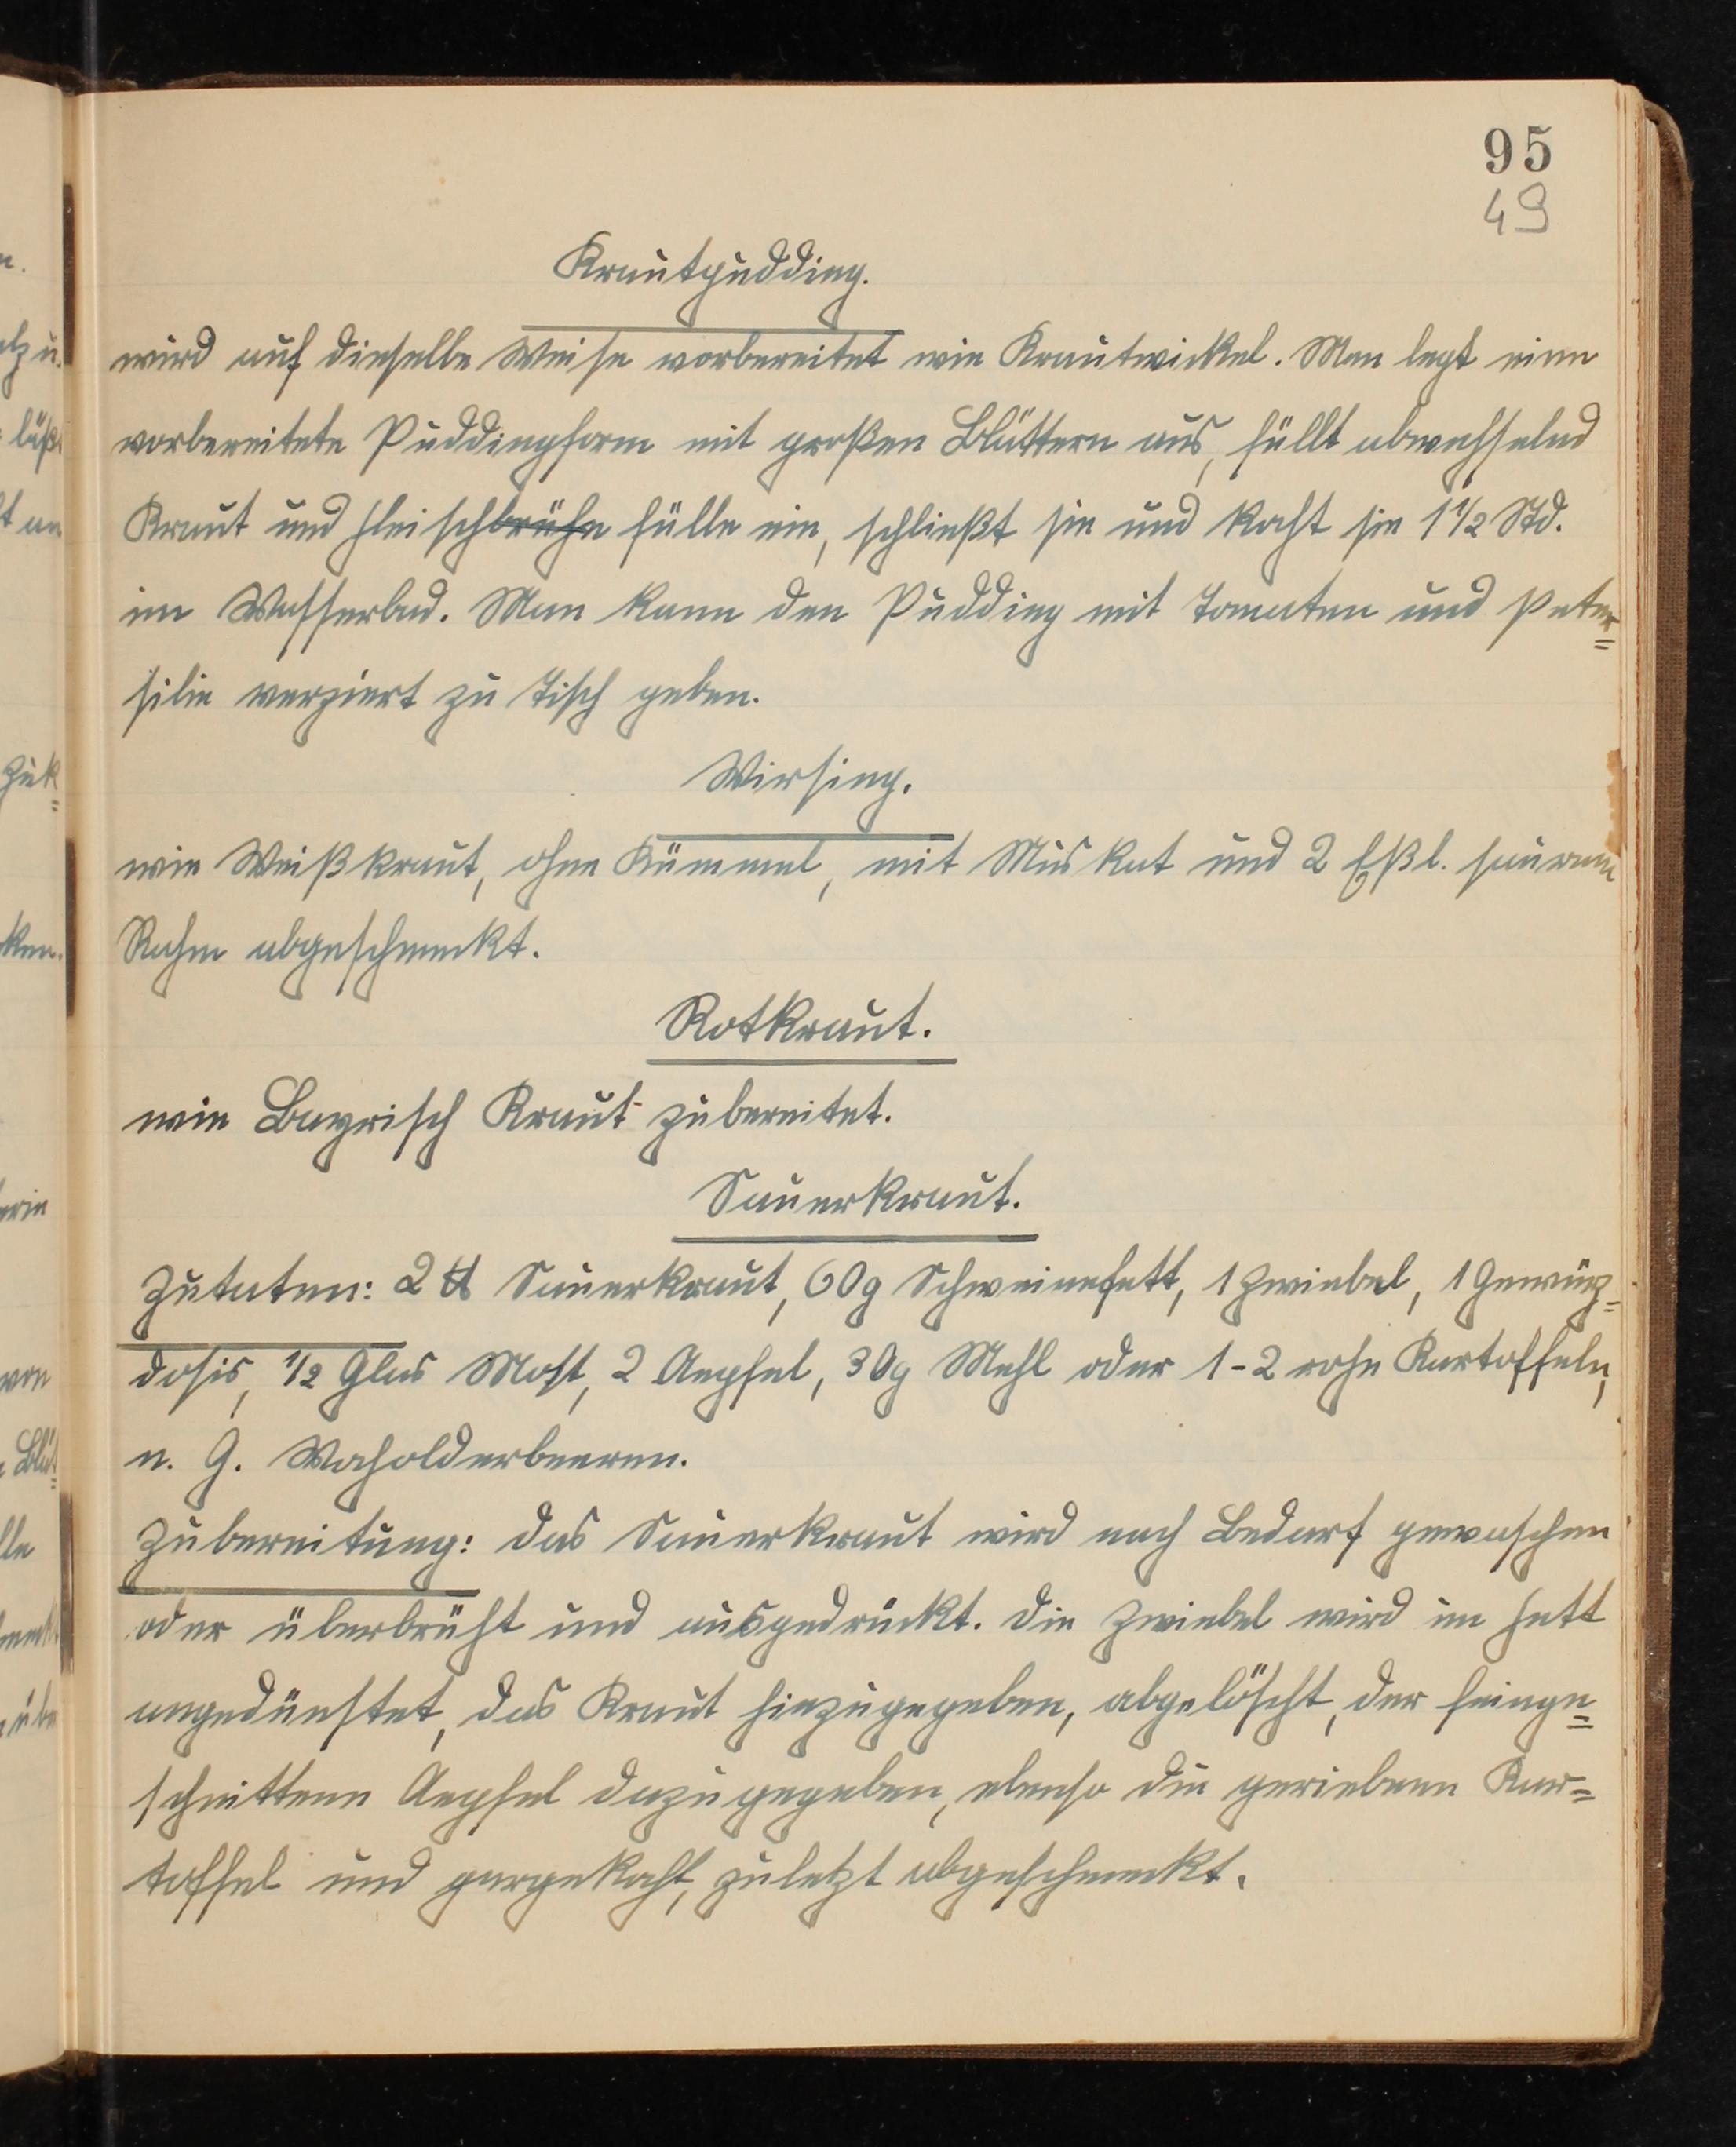 95
49
Krautpudding.
wird auf dieselbe Weise vorbereitet wie Krautwickel. Man legt eine
vorbereitete Puddingform mit großen Blättern aus, füllt abwechselnd
Kraut und Fleischbrühe fülle ein, schließt sie und kocht sie 1 1/2 Std.
im Wasserbad. Man kann den Pudding mit Tomaten und Peter=
silie verziert zu Tisch geben.
Wirsing.
wie Weißkraut, ohne Kümmel, mit Muskat und 2 Eßl. sauren
Rahm abgeschmeckt.
Rotkraut.
wie Bayrisch Kraut zubereitet.
Sauerkraut.
Zutaten: 2 ℔ Sauerkraut, 60g Schweinefett, 1 Zwiebel, 1 Gewürz=
dosis, 1/2 Glas Most, 2 Aepfel, 30g Mehl oder 1-2 rohe Kartoffeln,
n. G. Wacholderbeeren.
Zubereitung: Das Sauerkraut wird nach Bedarf gewaschen
oder überbrüht und ausgedrückt. Die Zwiebel wird im Fett
angedünstet, das Kraut hinzugegeben, abgelöscht, der feinge=
schnittene Aepfel dazugegeben, ebenso die geriebene Kar=
toffel und gargekocht, zuletzt abgeschmeckt.